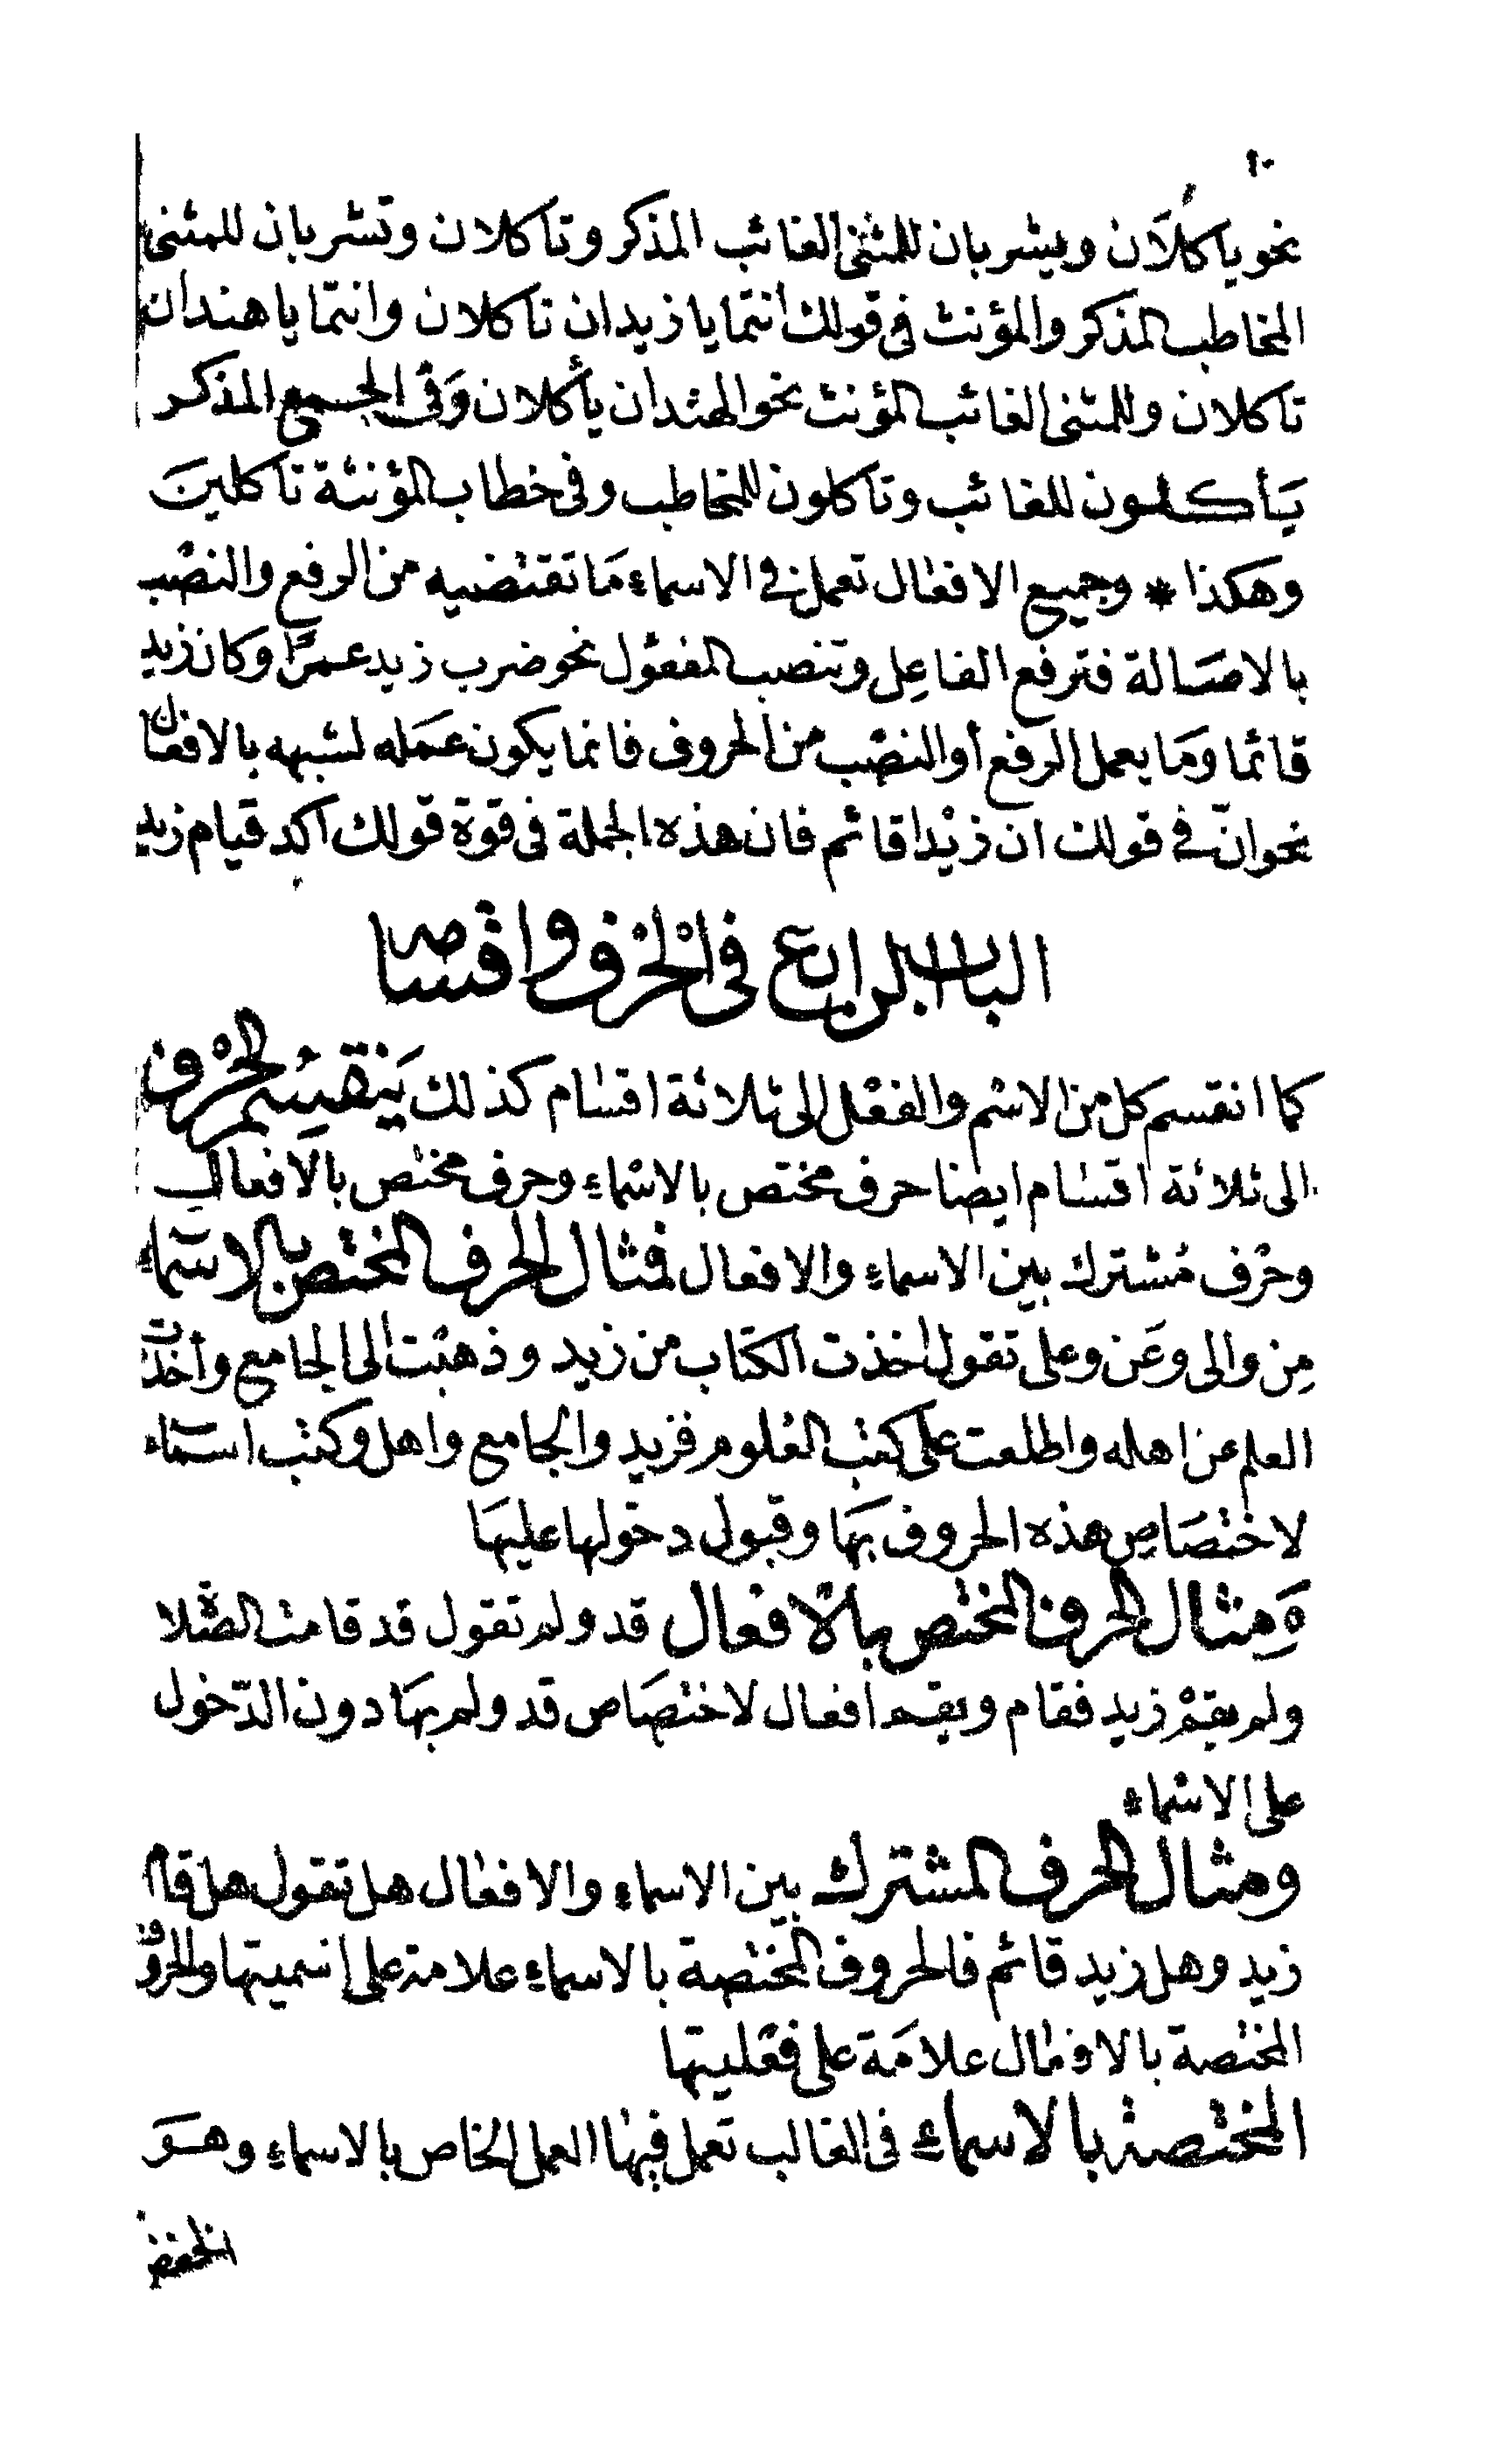 ١٠
نحو ياكلان ويشربان للمثنى الغائب المذكر وتاكلان وتشربان للمثنى
المخاطب المذكر والمؤنث فى قولك انتما يا زيدان تاكلان وانتما يا هندان
تاكلان وللمثنى الغائب المؤنث نحو الهندان يأكلان وَفى الجمع المذكر
يَأكلون للغائب وتاكلون للمخاطب وفى خطاب المؤنثة تاكلينَ
وهكذا * وجميع الافعال تعمل فى الاسماء مَا تقتضيه من الرفع والنصْب
بالاصَالة فترفع الفاعِل وتنصب المفعول نحو ضرب زيد عمرًا وكان زيد
قائما ومَا يعمل الرفع أو النصْب من الحروف فانما يكون عمَله لشبهه بالافعال
نحو انّ فى قولك ان زيْدا قائم فان هذه الجملة فى قوة قولك اكد قيام زيد
الباب الرابع فى الحْرف واقسامه
كما انقسم كل من الاسْم والفعْل الى ثلاثة اقسام كذلك يَنقسِم الحرْف
الى ثلاثة اقسام ايضا حرف مختص بالاسْماءِ وحرف مختص بالافعال
وحرْف مُشترك بين الاسماءِ والافعال فمثال الحرف المختص بالاسماء
مِن والى وعَن وعلى تقول اخذت الكتاب من زيد وذهبْت الى الجامع وأخذت
العلم عن اهله واطلعت على كتب العُلوم فزيد والجامع واهل وكتب اسماء
لاختصَاصِ هذه الحروف بهَا وقبول دخولها عليهَا
وَمثال الحرف المختص بالافعال قد ولم تقول قد قامت الصّلاة
ولم يقمْ زيد فقام ويقم افعال لاختصَاص قد ولم بهَا دون الدّخول
على الاسْماء
ومثال الحرف المشترك بين الاسماءِ والافعال هل تقول هل قام
زيد وهل زيد قائم فالحروف المختصة بالاسماءِ علامة على إسميتها والحروف
المختصة بالافعال علامَة على فعْليتها
المختصة بالاسماء فى الغالب تعمل فيها العمل الخاص بالاسماءِ وهوَ
الخفض